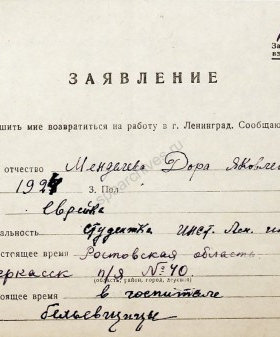 За
вз
ЗАЯВЛЕНИЕ
шить мне возвратиться на работу в г. Ленинград. Сообщаю
отчество Менделева Дора Яковле
1924 3. Пол
еврейка
альность студентка инст.
стоящее время Ростовская область
еркасск п/я №40.
(область, район, город,
тоящее время в госпитале
spbarchives.ru